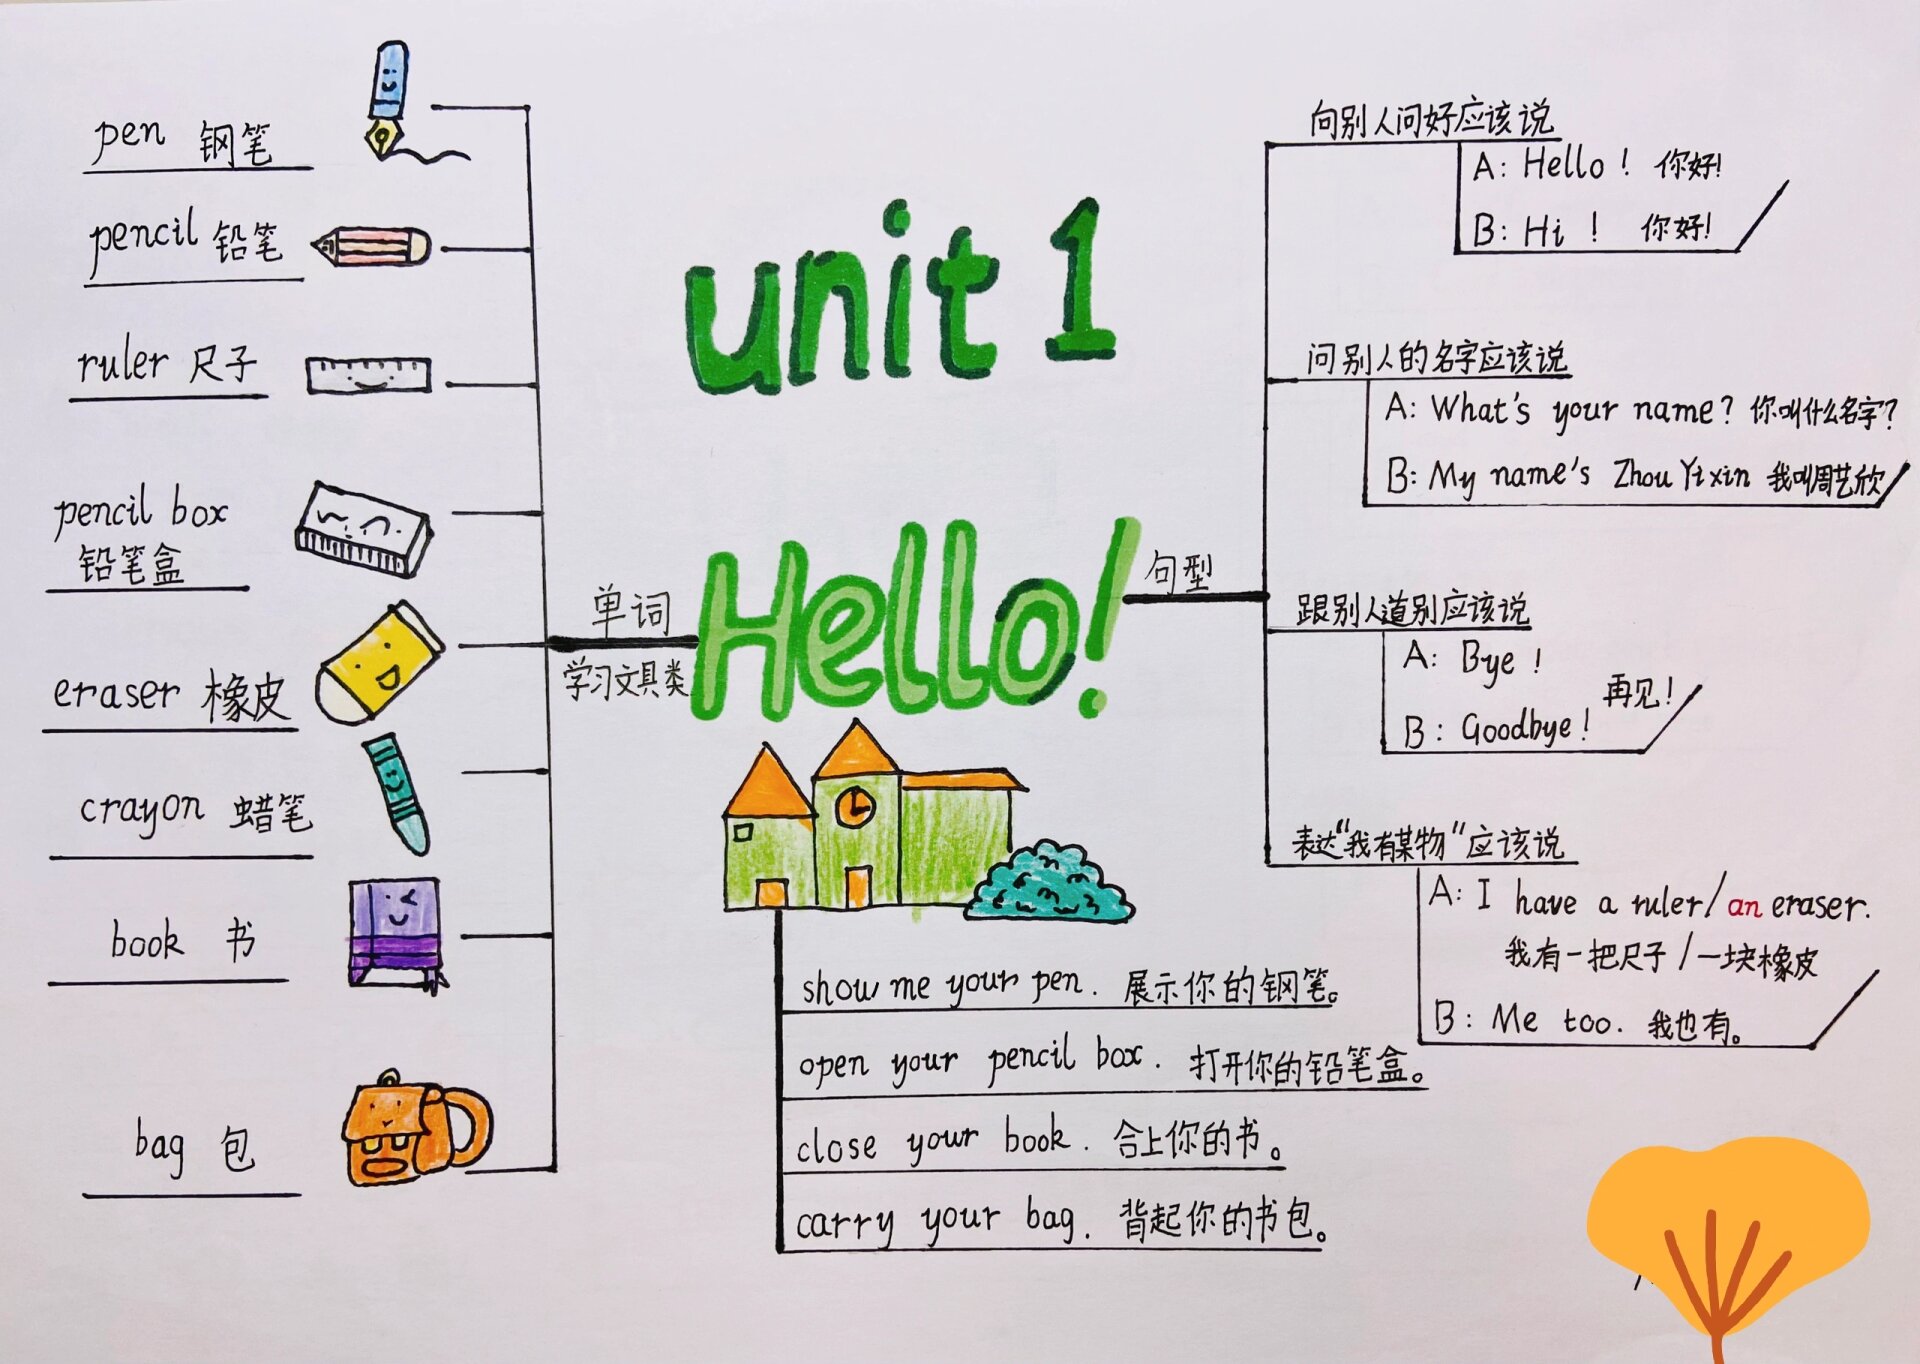 unit 1
Hello!
单词
学习文具类
pen 钢笔
pencil 铅笔
ruler 尺子
pencil box
铅笔盒
eraser 橡皮
crayon 蜡笔
book 书
bag 包
句型
向别人问好应该说
A: Hello! 你好!
B: Hi! 你好!
问别人的名字应该说
A: What's your name? 你叫什么名字?
B: My name's Zhou Yixin 我叫周艺欣
跟别人道别应该说
A: Bye!
B: Goodbye! 再见!
表达"我有某物"应该说
A: I have a ruler/an eraser.
我有一把尺子/一块橡皮
B: Me too. 我也有。
show me your pen. 展示你的钢笔。
open your pencil box. 打开你的铅笔盒。
close your book. 合上你的书。
carry your bag. 背起你的书包。